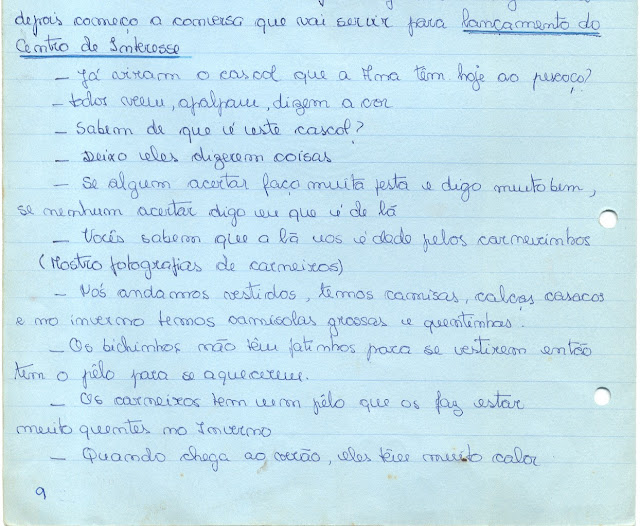 depois começo a conversa que vai servir para lançamento do
Centro de Interesse
— Já viram o cascol que a Ana têm hoje ao pescoço?
— todos veem, apalpam, dizem a cor
— Sabem de que é este cascol?
— Deixo eles dizerem coisas
— Se algum acertar faço muita festa e digo muito bem,
se nenhum acertar digo eu que é de lã
— Vocês sabem que a lã nos é dada pelos carneirinhos
(Mostro fotografias de carneiros)
— Nós andamos vestidos, temos camisas, calças casacos
e no inverno temos camisolas grossas e quentinhas.
— Os bichinhos não têm fatinhos para se vestirem então
tem o pêlo para se aquecerem.
— Os carneiros tem um pêlo que os faz estar
muito quentes no Inverno
— Quando chega ao verão, eles têm muito calor
9